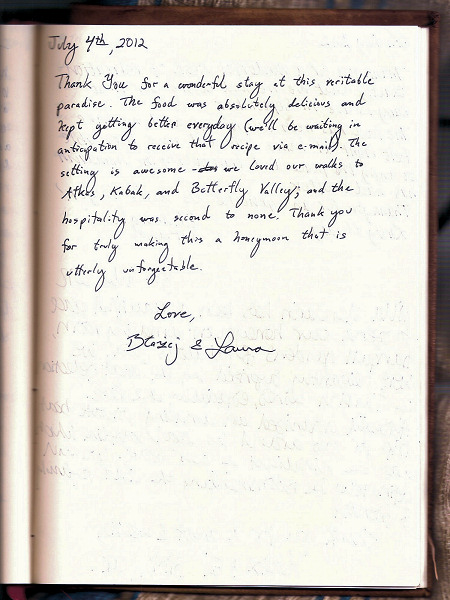 July 4th, 2012
Thank You for a wonderful stay at this veritable
paradise. The food was absolutely delicious and
kept getting better everyday (we'll be waiting in
anticipation to receive that recipe via e-mail). The
setting is awesome - we loved our walks to
Atkos, Kabak, and Butterfly Valley; and the
hospitality was second to none. Thank you
for truly making this a honeymoon that is
utterly unforgettable.
Love,
Błażej & Laura